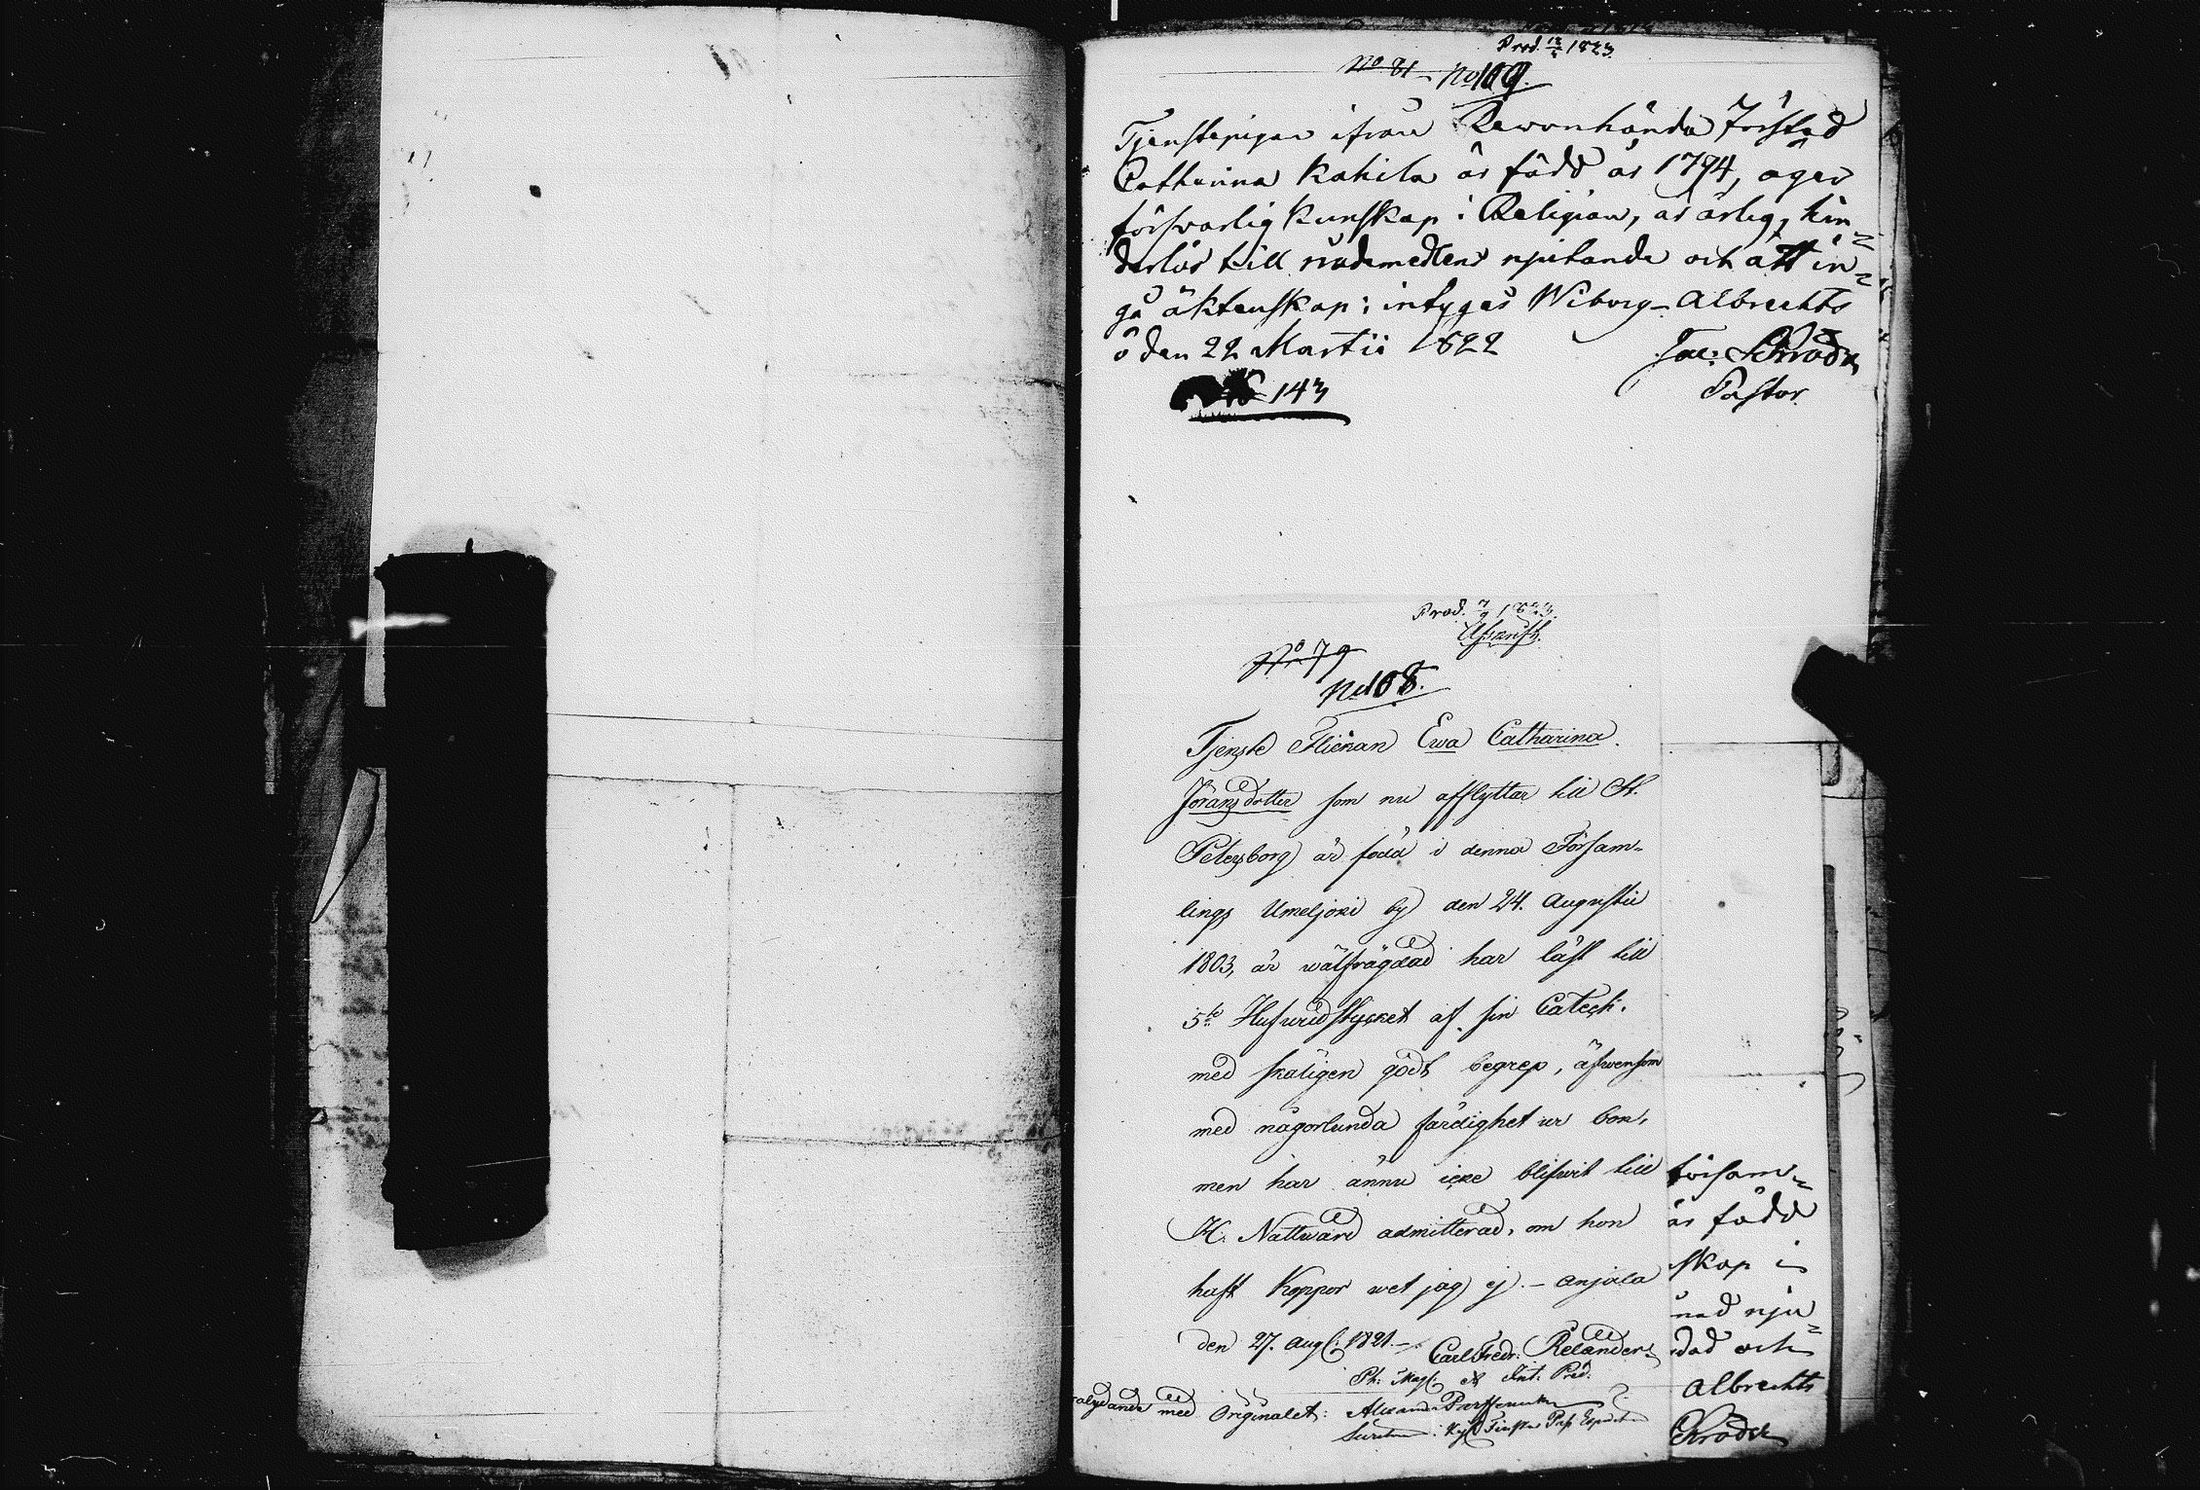 Prod. 12/4 1823.
No 81 No 109.
Tjenstepigan ifrån Rawanhända Förstad
Catharina Kahila är född år 1794, äger
försvarlig kunskap i Religion, är ärlig, hin=
derlös till nådemedlens njutande och att in=
gå äktenskap; intygas Wiborg-Albrechts
ö den 22 Martii 1822 Jac: Schröder
Pastor.
143
Prod. 7/9 1823.
No 79
No 108.
Tjenste Flickan Ewa Catharina
Jöransdotter som nu afflyttar till St.
Petersborg är född i denna Försam-
lings Umeljoki by den 24. Augustii
1803, är wälfrägdad har läst till
5te Hufwudstycket af sin Catech.
med skäligen godt begrep, äfwensom
med någorlunda färdighet ur bok,
men har ännu icke blifwit till
H. Nattward admitterad, om hon
haft Koppor wet jag ej. - Anjala
den 27. Aug. 1821. Carl Fredr: Relander
Ph: Mag: Ord:
med Originalet: Alexander
försam=
är född
skap i
nåd nju=
och
Albrechts
Schröder